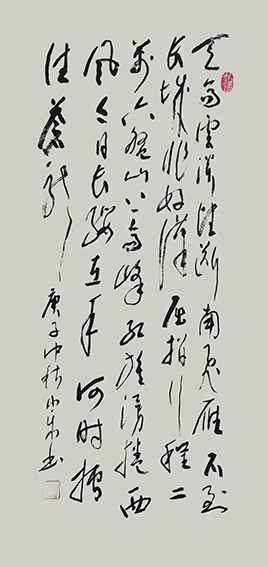 天高雲淡望断南飛雁不到
长城非好漢屈指行程二
萬六盤山上高峰红旗漫捲西
風今日长缨在手何时缚
住蒼龍
庚子仲秋 书